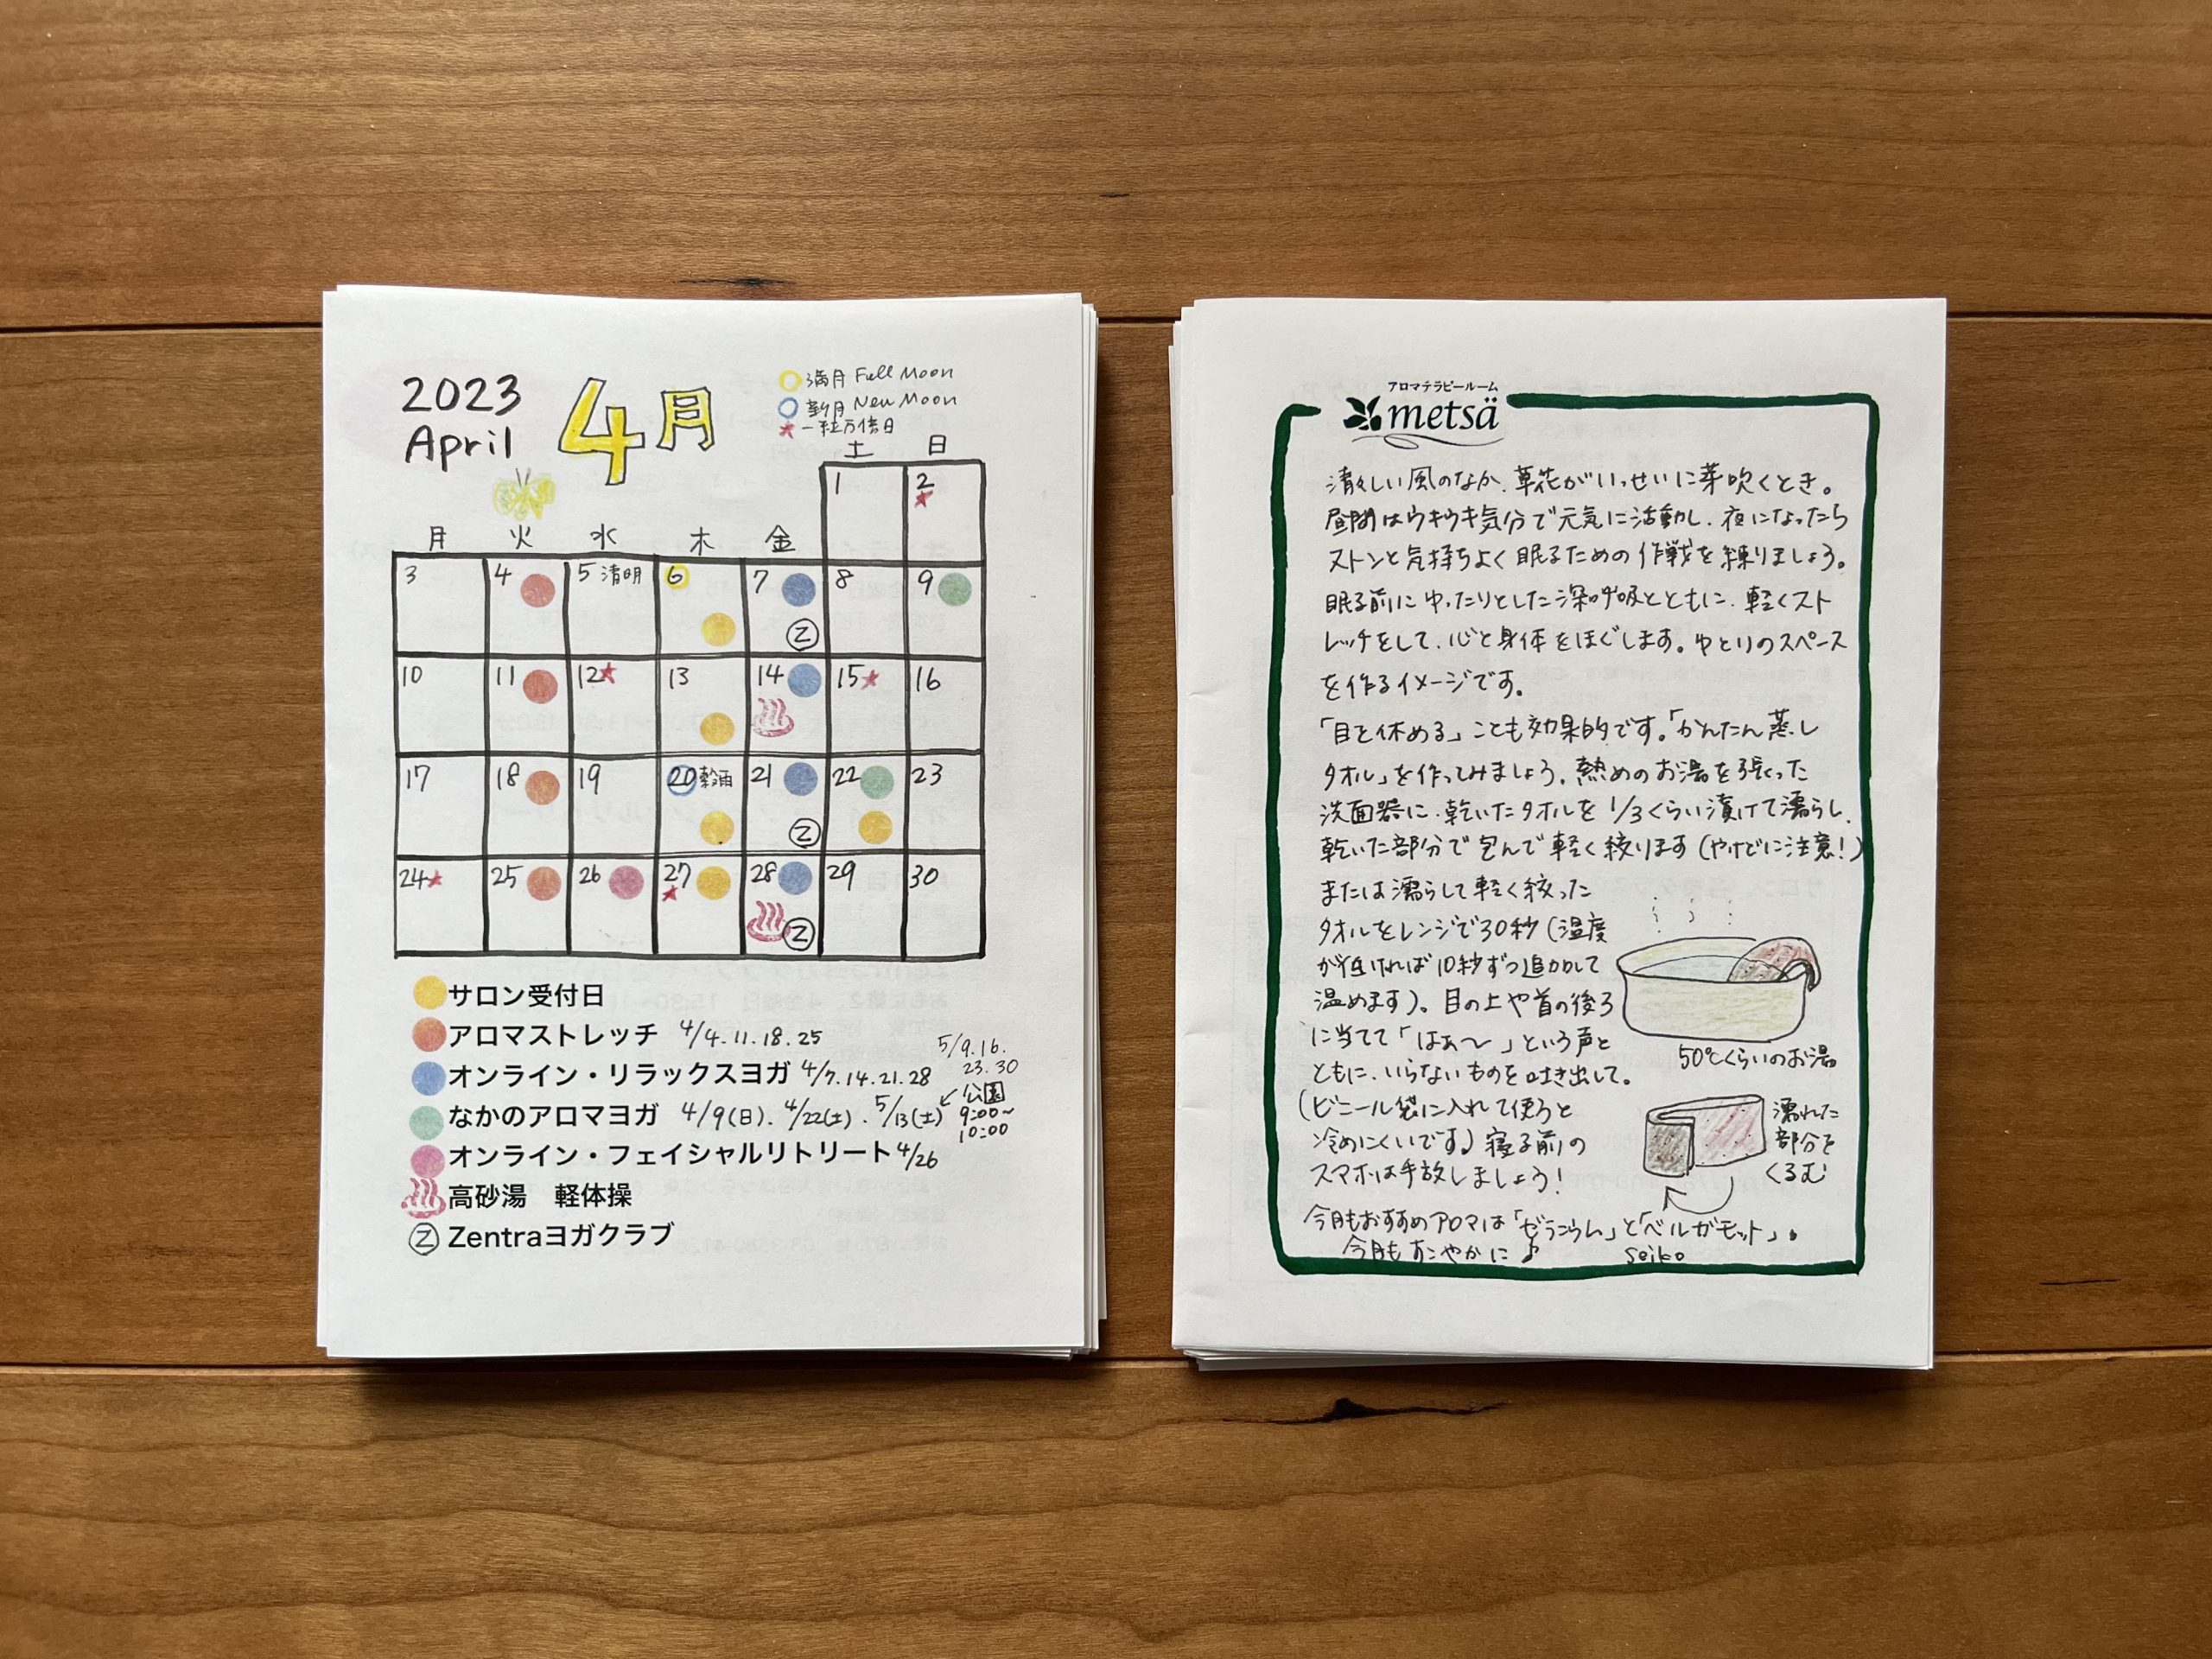 2023
April
4月
満月 Full Moon
新月 New Moon
一粒万倍日
土 日
1 2
月 火 水 木 金
3 4 5 清明 6 7 8 9
Z
10 11 12 13 14 15 16
17 18 19 20 穀雨 21 22 23
Z
24 25 26 27 28 29 30
Z
サロン受付日
アロマストレッチ 4/4.11.18.25
5/9.16.
23.30
オンライン・リラックスヨガ 4/7.14.21.28
なかのアロマヨガ 4/9(日). 4/22(土). 5/13(土)
公園
9:00~
10:00
オンライン・フェイシャルリトリート 4/26
高砂湯 軽体操
Z Zentraヨガクラブ
アロマテラピールーム
metsä
清々しい風のなか、草花がいっせいに芽吹くとき。
昼間はウキウキ気分で元気に活動し、夜になったら
ストンと気持ちよく眠るための作戦を練りましょう。
眠る前にゆったりとした深呼吸とともに、軽くスト
レッチをして、心と身体をほぐします。ゆとりのスペース
を作るイメージです。
「目を休める」ことも効果的です。「かんたん蒸し
タオル」を作ってみましょう。熱めのお湯を張った
洗面器に、乾いたタオルを1/3くらい漬けて濡らし、
乾いた部分で包んで軽く絞ります(やけどに注意!)
または濡らして軽く絞った
タオルをレンジで30秒(温度
が低ければ10秒ずつ追加して
温めます)。目の上や首の後ろ
に当てて「はぁ〜」という声と
ともに、いらないものを吐き出して。
(ビニール袋に入れて使うと
冷めにくいです)寝る前の
スマホは手放しましょう!
50℃くらいのお湯
濡れた
部分を
くるむ
今月もおすすめアロマは「ぜらにうむ」と「ベルガモット」。
今月もすこやかに♪ Seiko